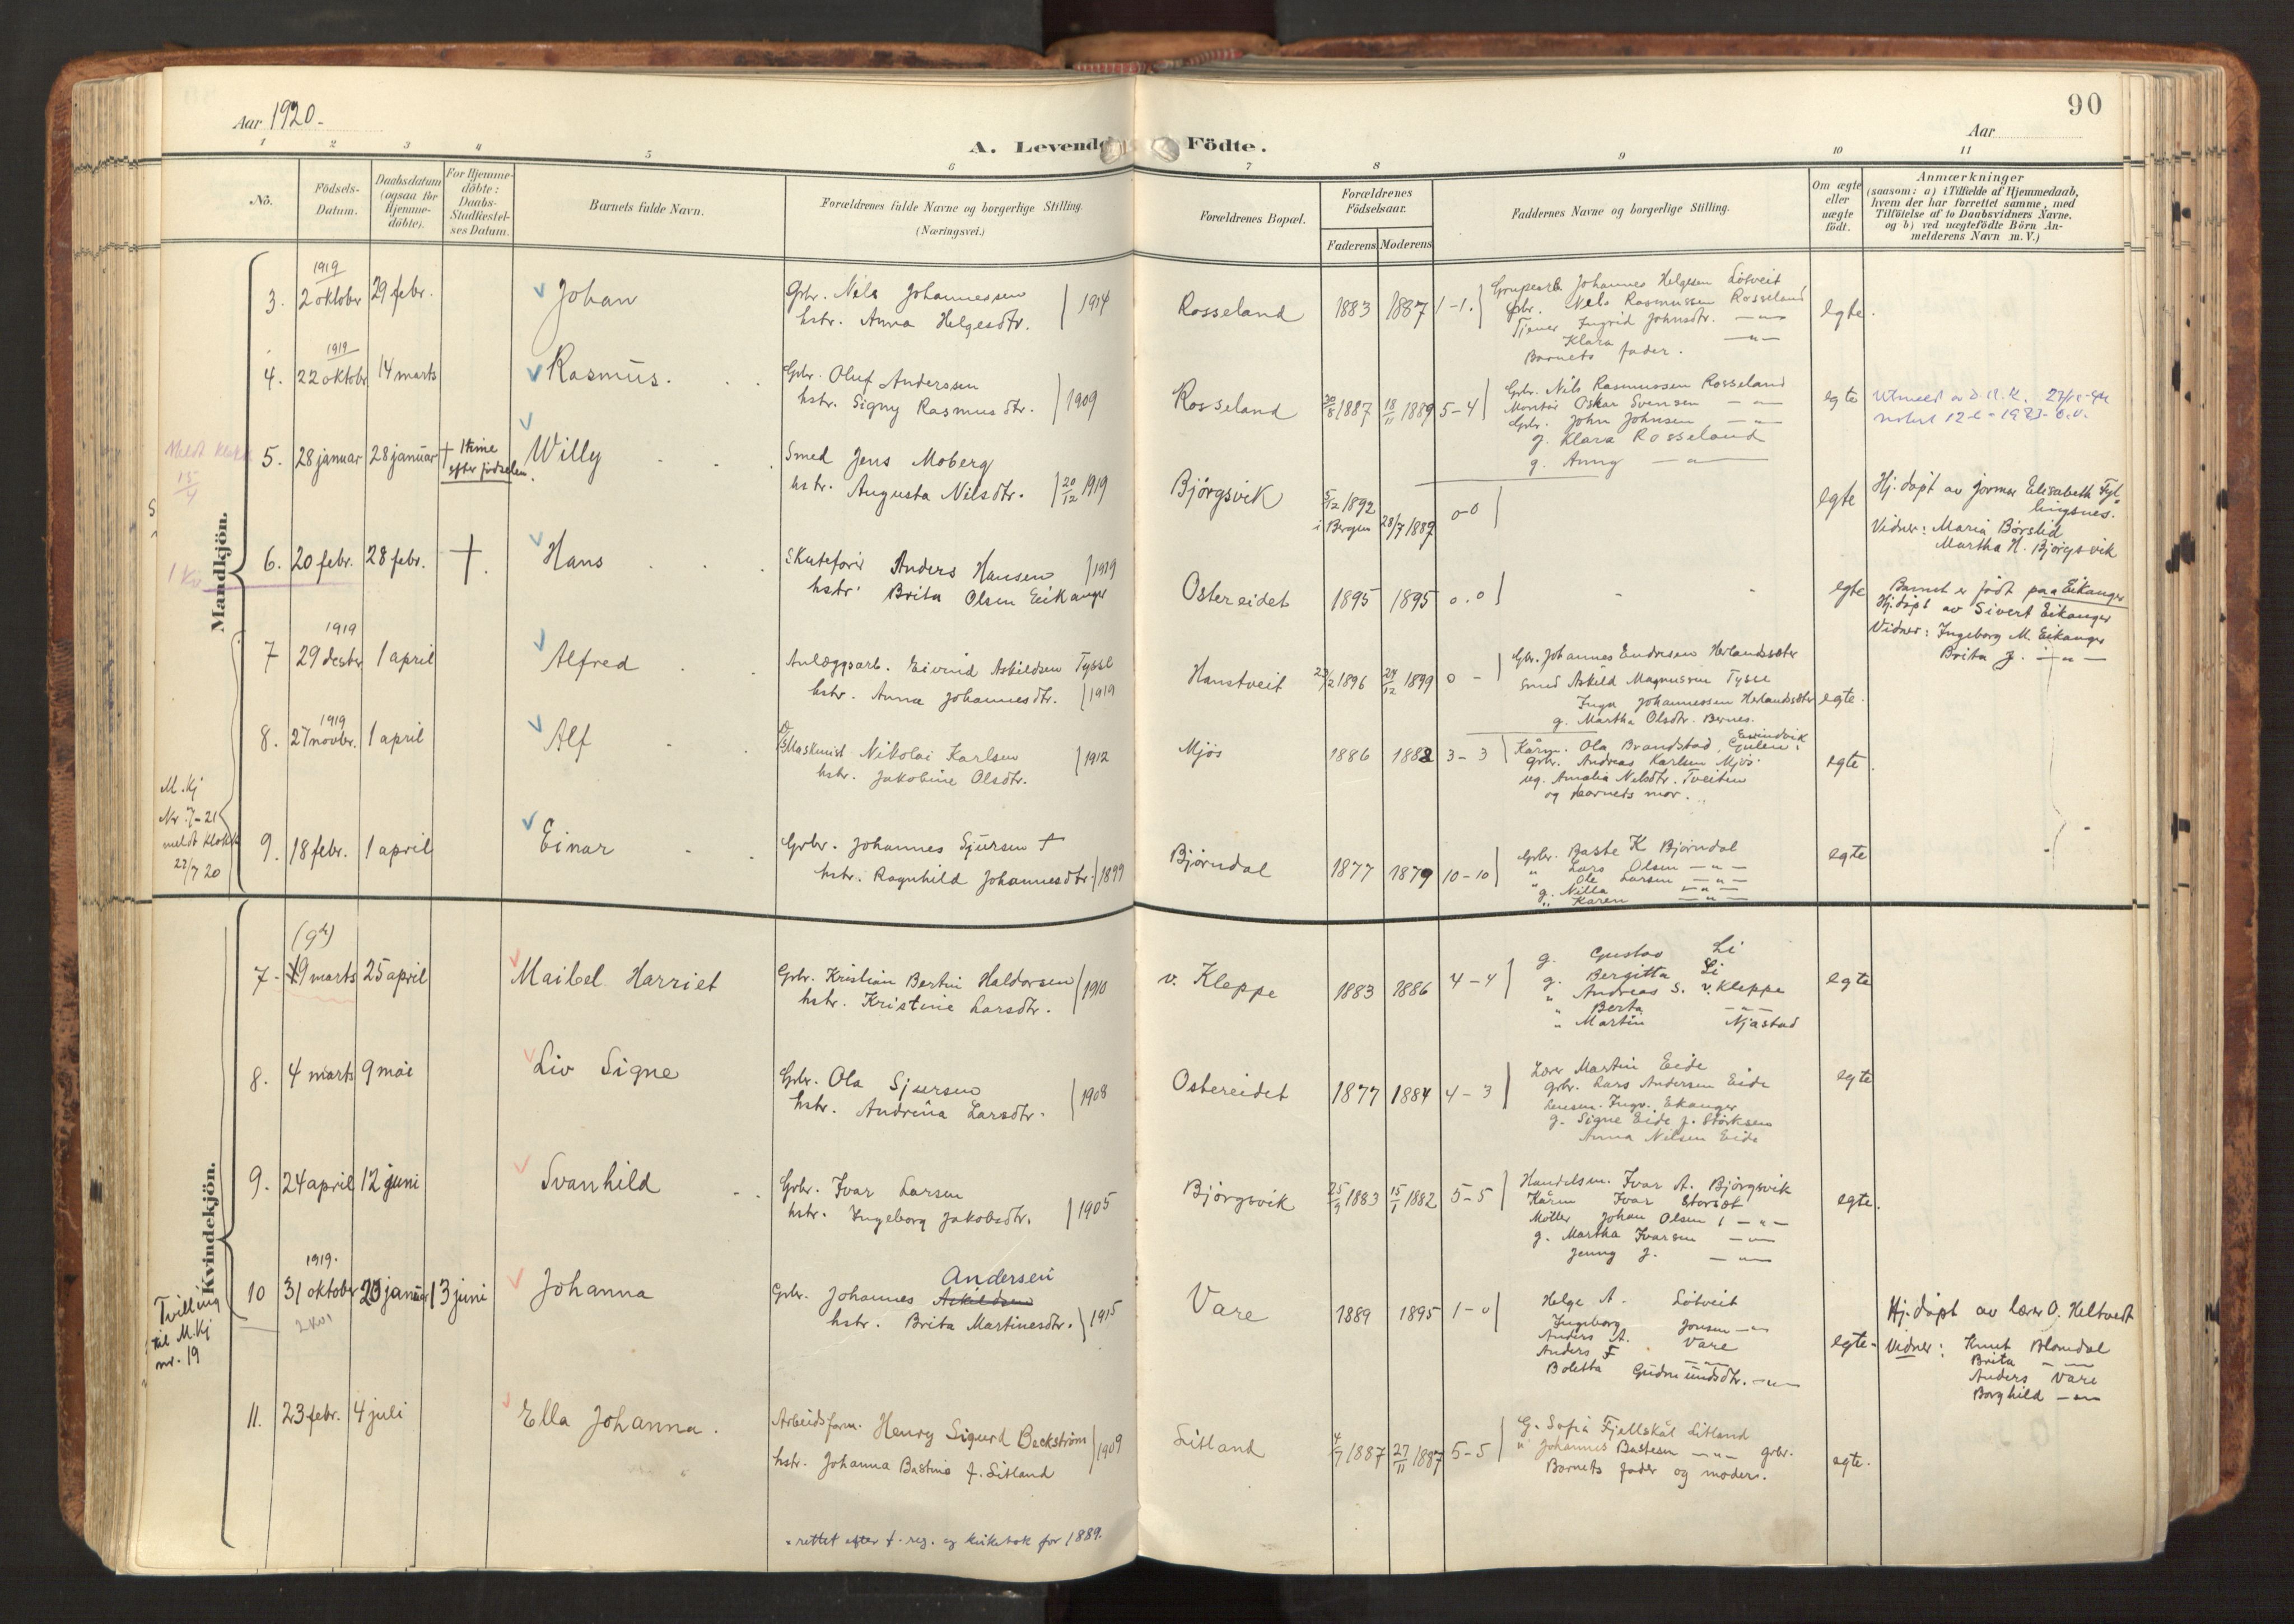 90
Aar 1920.
Aar
A. Levende Födte.
1 2 3 4 5 6 7 8 9 10 11
No.
Födsels-Datum.
Daabsdatum (ogsaa for Hjemme-döbte).
For Hjemme-döbte: Daabs-Stadfæstel-ses Datum.
Barnets fulde Navn.
Forældrenes fulde Navne og borgerlige Stilling.
(Næringsvei.)
Forældrenes Bopæl.
Forældrenes Födselsaar.
Faderens Moderens
Faddernes Navne og borgerlige Stilling.
Om ægte eller uægte födt.
Anmærkninger
(saasom: a) i Tilfælde af Hjemmedaab,
hvem der har forrettet samme, med
Tilföielse af to Daabsvidners Navne,
og b) ved uægtefödte Börn An-
melderens Navn m. V.)
Mandkjön.
1919
3. 2 oktober 29 febr. Johan
Gbr. Nils Johannessen
hstr. Anna Helgesdtr. 1914
Rosseland 1883 1887 1-1.
Johannes Helgesen Lötveit
Gbr. Nils Rasmussen Rosseland
Tjener Ingrid Johnsdtr. —"—
Klara —"—
Barnets fader.
egte.
1919
4. 22 oktobr 14 marts Rasmus.
Gbr. Oluf Anderssen
hstr. Signy Rasmusdtr. 1909
Rosseland 30/8 1887 18/11 1889 5-4
Gbr. Nils Rasmussen Rosseland
Montör Oskar Svensen —"—
Gbr. John Johnsen —"—
g. Klara Rosseland
g. Anny —"—
egte
5. 28 januar 28 januar + 1 time efter födselen. Willy
Smed Jens Moberg
hstr. Augusta Nilsdtr. 20/12 1919
Björgsvik 5/12 1892 i Bergen 28/7 1889 0-0
egte
Hj. döpt av jormor Elisabeth Fyl-
lingsnes.
Vidner: Maria Börslid
Martha H. Björgsvik
15/4
6. 20 febr. 28 febr. +. Hans
Skuteförer Anders Hansen 1919
hstr. Brita Olsen Eikanger
Ostereidet 1895 1895 0.0
egte
Barnet er födt paa Eikanger
Hj. döpt av Sivert Eikanger
Vidner: Ingeborg M. Eikanger
Brita J. —"—
1919
7 29 desbr 1 april Alfred
Anlæggsarb. Eivind Askildsen Tysse
hstr. Anna Johannesdtr. 1919
Hanstveit 23/2 1896 24/12 1899 0 -
Gbr. Johannes Endresen Herlandssæter
Smed Askild Magnussen Tysse
Inga Johannessen Herlandssæter
g. Martha Olsdtr. Bernes.
egte.
1919
8. 27 novbr. 1 april Alf
Maskinist Nikolai Karlsen
hstr. Jakobine Olsdtr. 1912
Mjös 1886 1882 3-3
Kårm. Ola Brandstad, Gulen.
Eivindvik
gbr. Andreas Karlsen Mjös
ug. Amalia Nilsdtr. Tveiten
og barnets mor.
egte
M. Kj
Nr. 7-21
meldt Klokk
22/7 20
9. 18 febr. 1 april Einar
Gbr. Johannes Sjursen +
hstr. Ragnhild Johannesdtr. 1899
Björndal 1877 1879 10-10
Gbr. Baste K Björndal
" Lars Olsen —"—
" Ole Larsen —"—
g. Nilla —"—
" Karen —"—
egte
Kvindekjön.
(9de)
7. 19 marts 25 april Maibel Harriet
Gbr. Kristian Bertin Haldorsen
hstr. Kristine Larsdtr. 1910
v. Kleppe 1883 1886 4-4
g. Gustav Li
g. Bergitta Li
" Andreas S. v. Kleppe
" Berta —"—
" Martin Njåstad
egte
8. 4 marts 9 mai Liv Signe
Gbr. Ola Sjursen
hstr. Andrina Larsdtr. 1908
Ostereidet 1877 1884 4-3
Lærer Martin Eide
gbr. Lars Andersen Eide
Ingv. Eikanger
g. Signe Eide f. Störksen
Anna Nilsen Eide
egte
9. 24 april 12 juni Svanhild
Gbr. Ivar Larsen
hstr. Ingeborg Jakobsdtr. 1905
Björgsvik 25/9 1883 15/1 1882 5-5
Handelsm. Ivar A. Björgsvik
Kårm Ivar Storset
Möller Johan Olsen —"—
g. Martha Ivarsen —"—
Jenny J. —"—
egte.
1919.
10 31 oktober 20 januar 13 juni Johanna
Andersen
Gbr. Johannes Askildsen
hstr. Brita Martinesdtr. 1915
Vare 1889 1895 1-0
Helge A. Lötveit
Ingeborg Jonsen —"—
Anders A. Vare
Anders F —"—
Boletta Gudmundsdtr. —"—
egte.
Hj. döpt av lærer O. Heltvedt
Vidner: Knut Blomdal
Brita —"—
Anders Vare
Borghild —"—
Tvilling
til M. Kj
nr. 19
11. 23 febr. 4 juli Ella Johanna.
Arbeidsform. Henry Sigurd Beckström
hstr. Johanna Bastine f. Litland 1909
Litland 4/7 1887 27/11 1887 5-5
G. Sofia Fjellskål Litland
" Johannes Bastesen —"— gbr.
Barnets fader og moder.
egte.
rettet efter f. reg. og kirkebok for 1889.